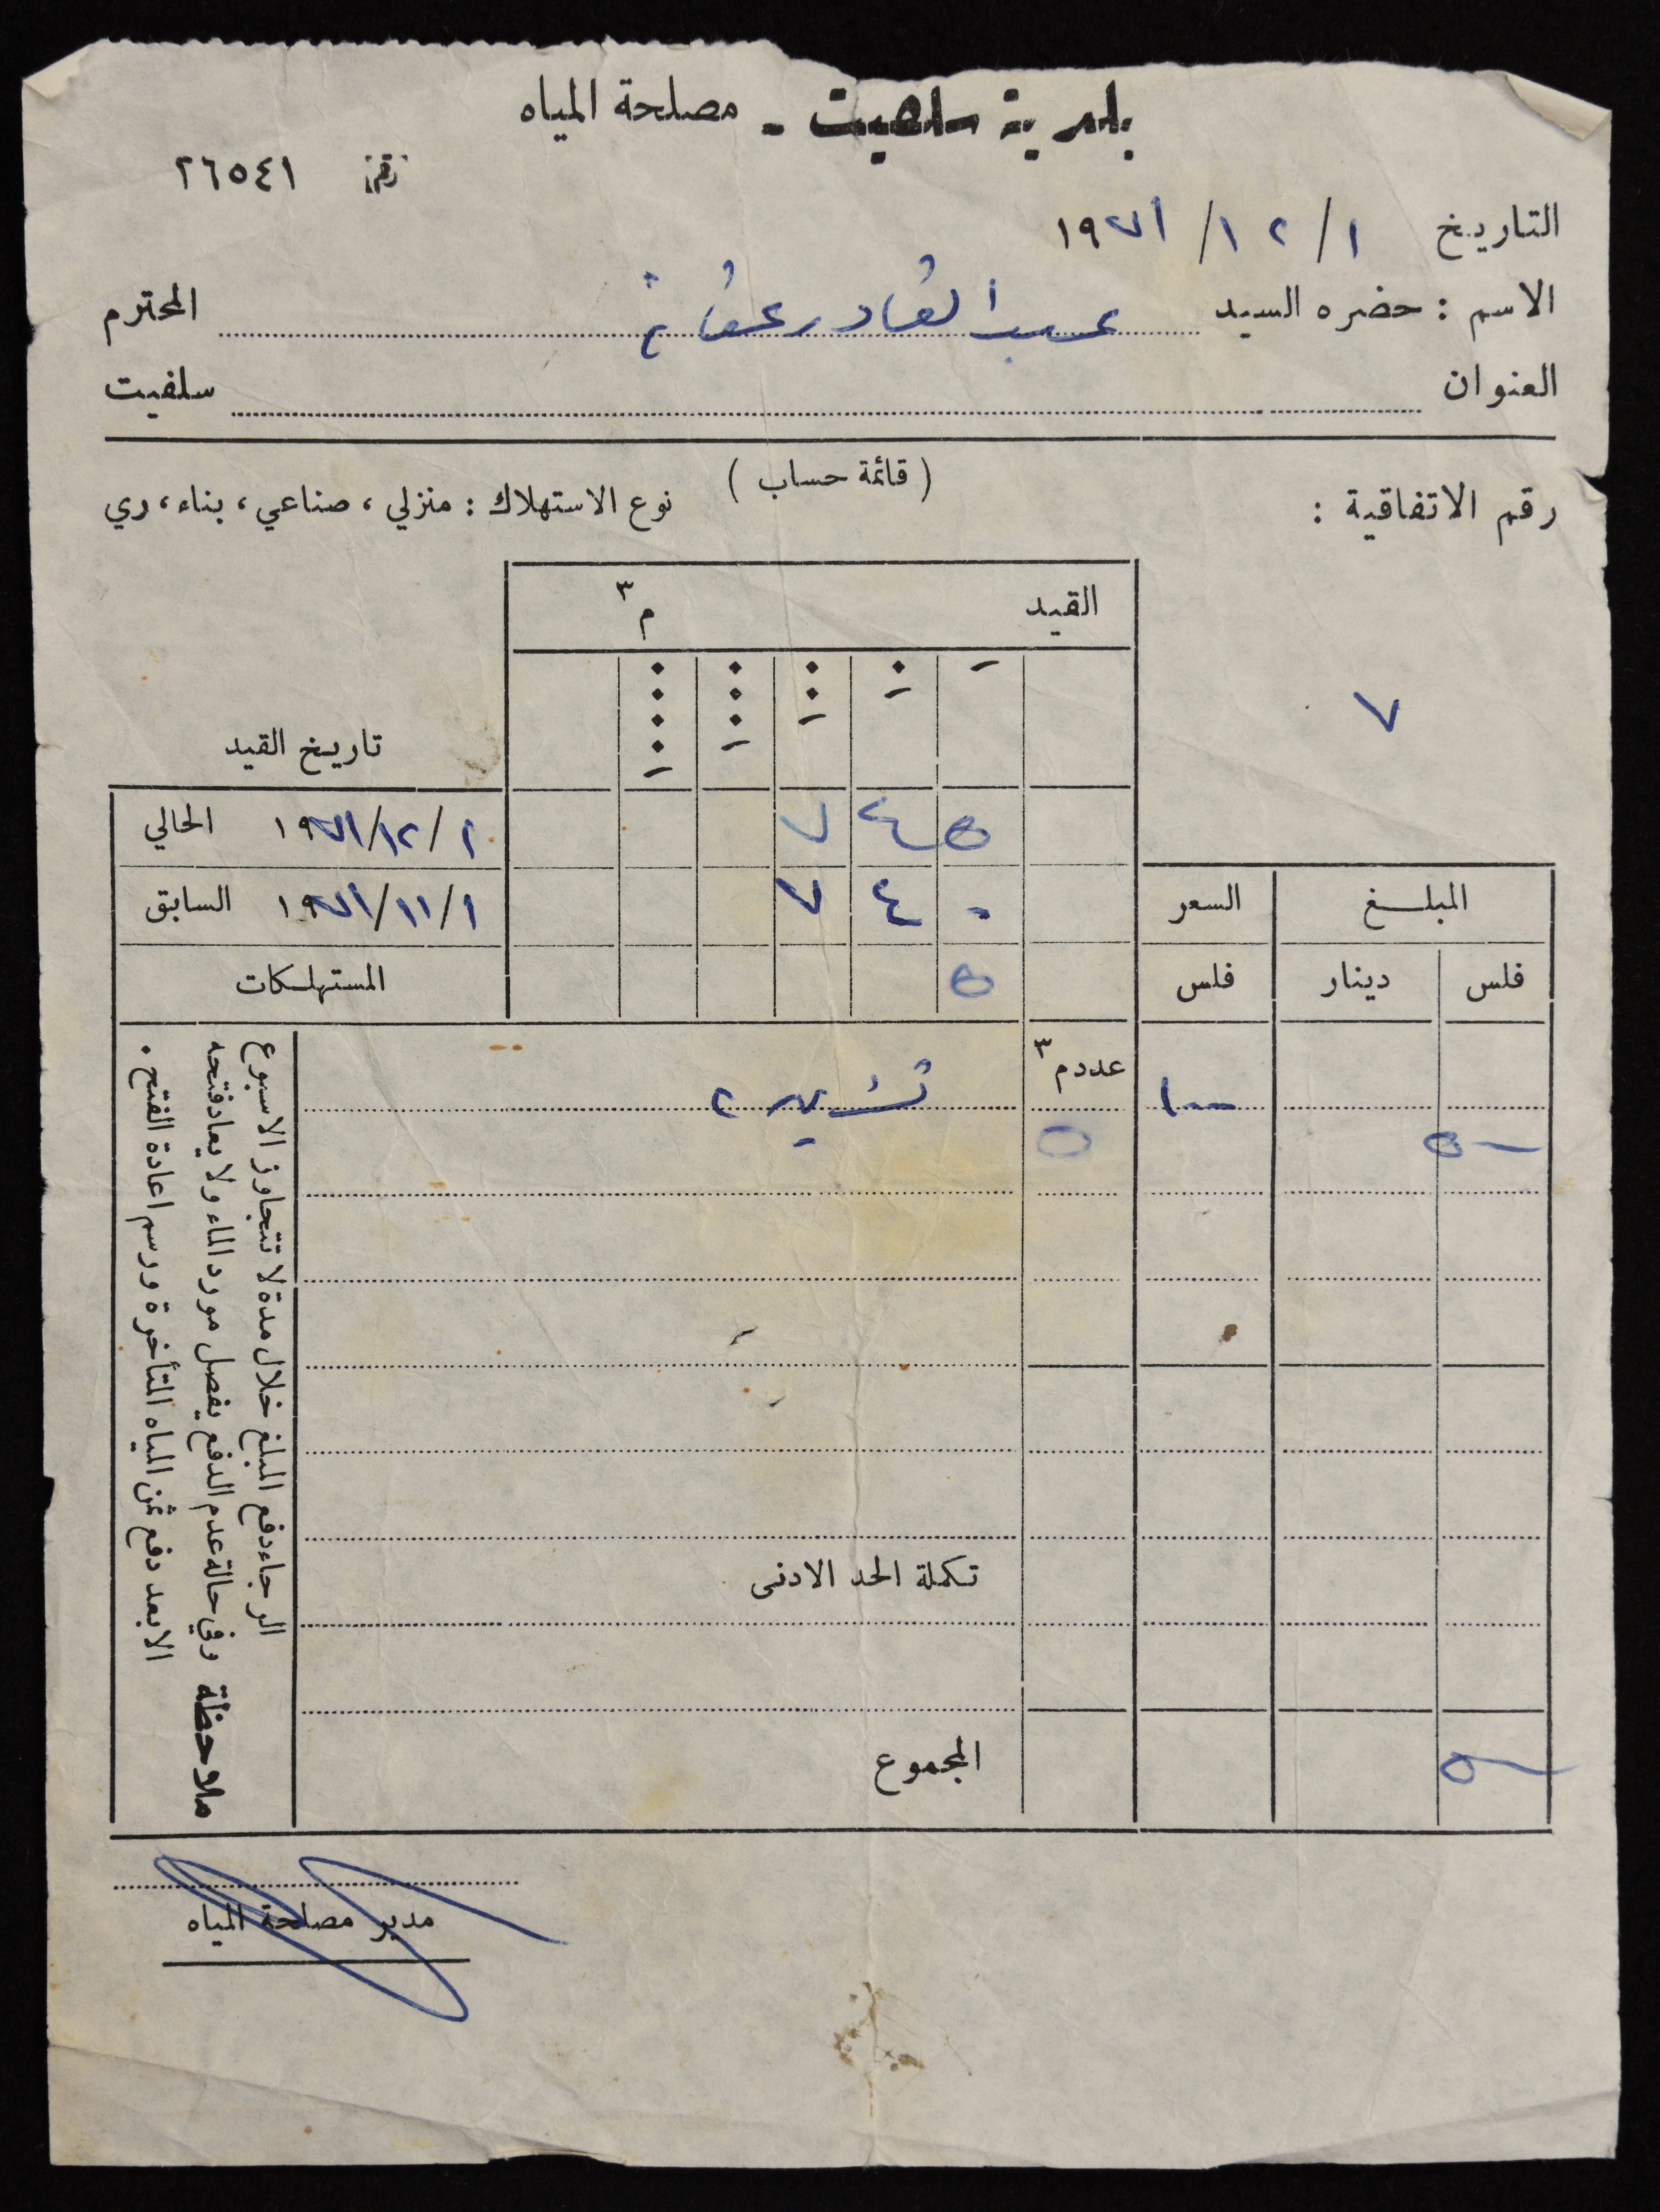 بلدية سلفيت - مصلحة المياه
رقم ٢٦٥٤١
التاريخ ١ / ١٢ / ١٩٧١
الاسم : حضره السيد عبد القادر عفانة المحترم
العنوان سلفيت
( قائمة حساب )
رقم الاتفاقية : نوع الاستهلاك : منزلي ، صناعي ، بناء ، ري
٧
القيد م٣
تاريخ القيد
٥ ٤ ٧ ١ / ١٢ / ١٩٧١ الحالي
٠ ٤ ٧ ١ / ١١ / ١٩٧١ السابق
٥ المستهلكات
المبلغ السعر
فلس دينار فلس
عدد م٣
١٠٠ تشرين ٢
٥٠٠ ٥
تكملة الحد الادنى
٥٠٠ المجموع
الرجاء دفع المبلغ خلال مدة لا تتجاوز الاسبوع
ملاحظة وفي حالة عدم الدفع يفصل مورد الماء ولا يعاد فتحه
الا بعد دفع ثمن المياه المتأخرة ورسم اعادة الفتح .
مدير مصلحة المياه